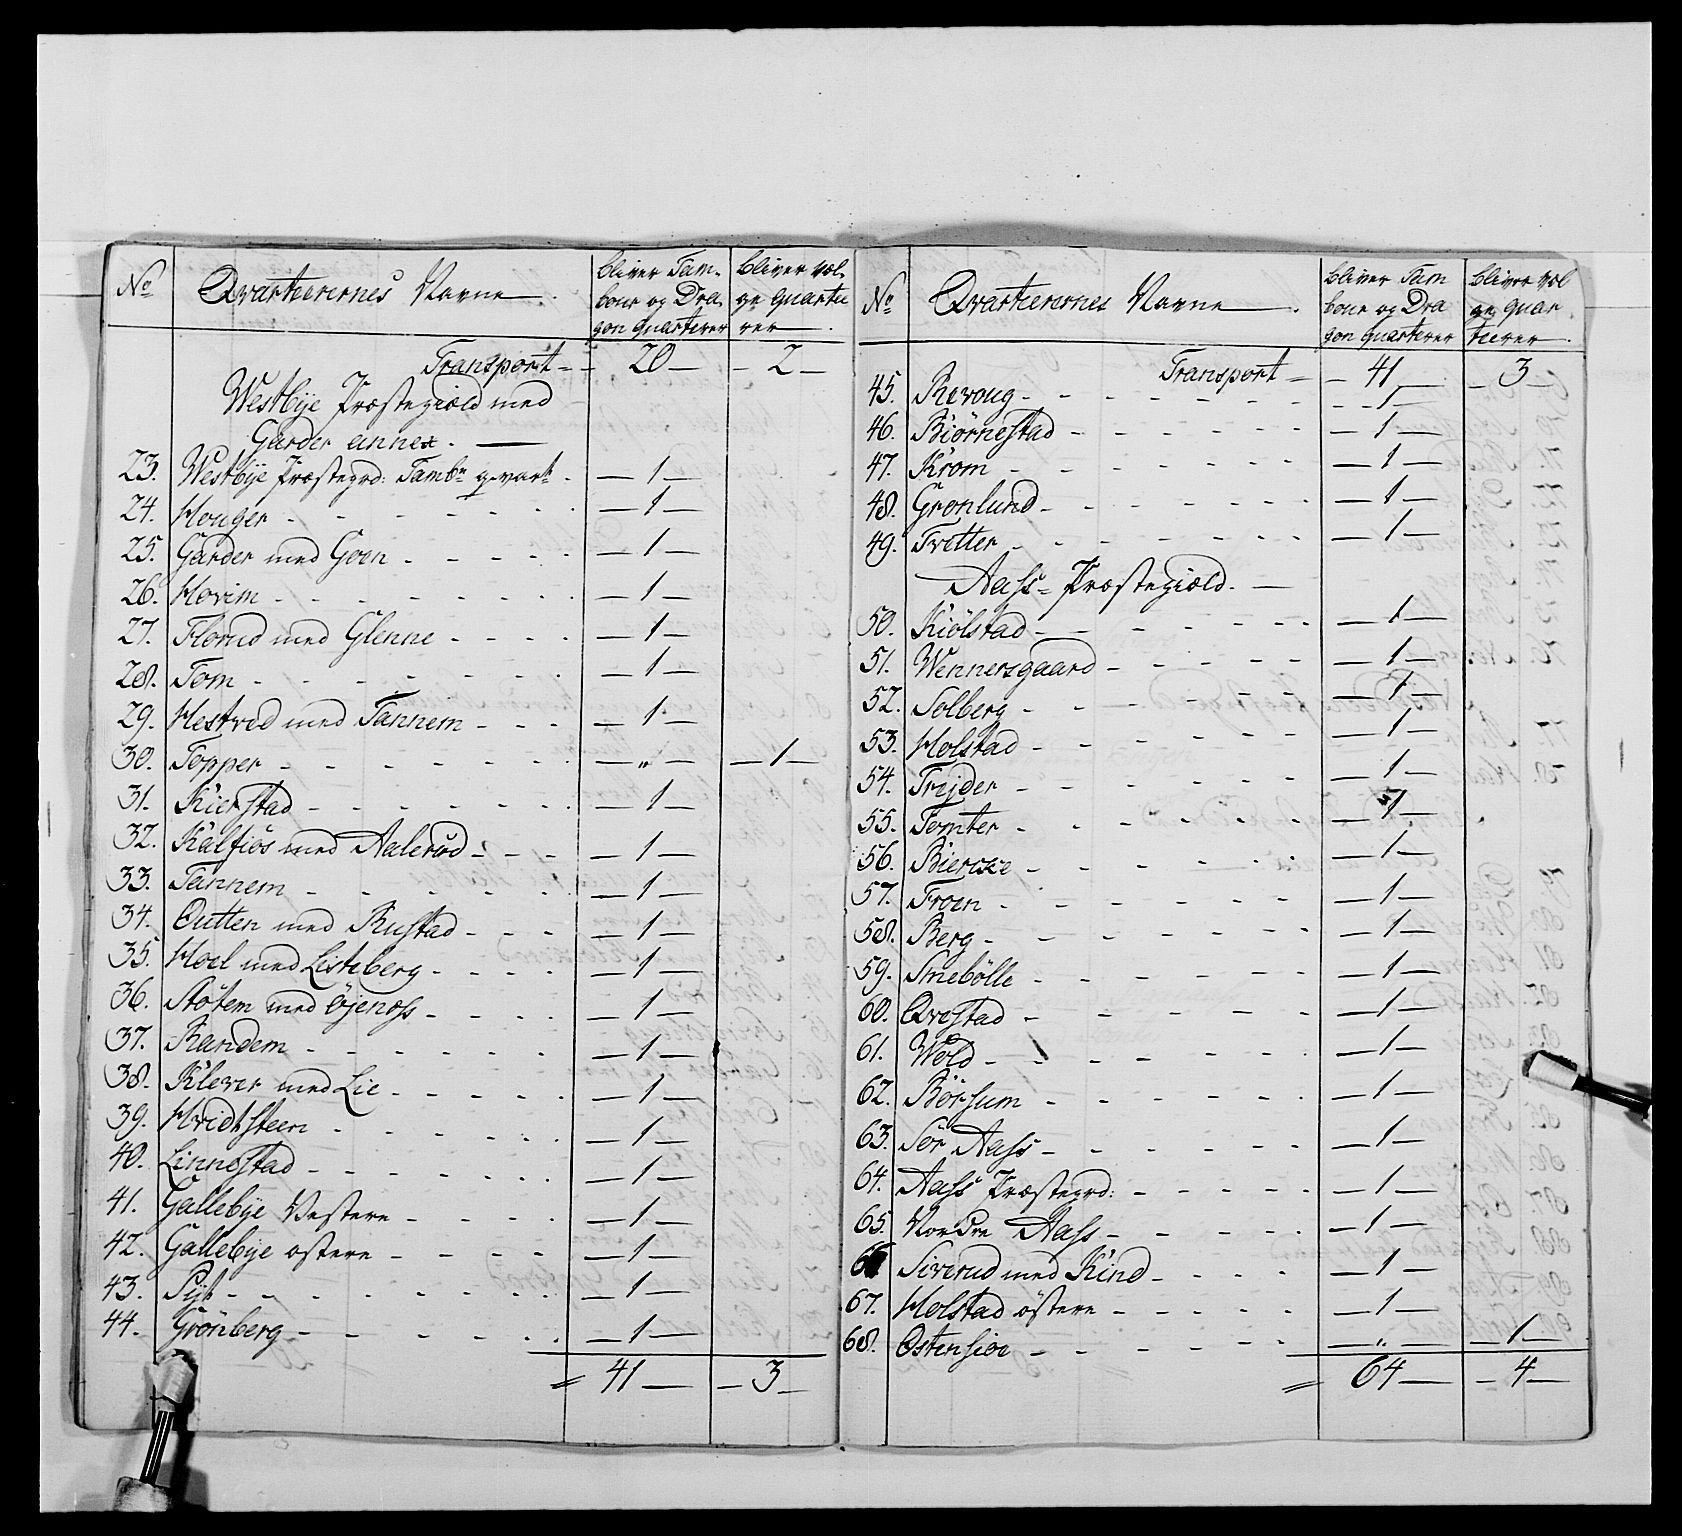 No Qvarteerernes Navne bliver Tam- bliver væl-
bour og Dra- ge quartee
gon quarterer rer
Transport = - 20 - - 2 -
Westbÿe Præstegiæld med
Garder annex.
23. Westbÿe Præstegrd: Tambr qvart. - 1 -
24. Houger - 1 -
25. Garder med Goen - 1 -
26. Hovim - 1 -
27. Florud med Glenne - 1 -
28. Tom - 1 -
29. Hestved med Tannem - 1 -
30. Topper - „ - - 1 -
31. Kierstad - 1 -
32. Kalfiøs med Aalerud - 1 -
33. Tannem - 1 -
34. Outten med Rustad - 1 -
35. Hoel med Listeberg - 1 -
36. Støtem med Øjenøss - 1 -
37. Randem - 1 -
38. Klever med Lie - 1 -
39. Hvidtsteen - 1 -
40. Linnestad - 1 -
41. Gallebÿe Vestere - 1 -
42. Gallebÿe østere - 1 -
43. Pijt - 1 -
44. Grønberg - 1 -
= 41 - - 3 -
No Qvarteerernes Navne bliver Tam bliver væl
bour og Dra ge quar
gon quarterer teerer
Transport = - 41 - - 3 -
45. Revoug - 1 -
46. Biørnestad - 1 -
47. Krom - 1 -
48. Grønlund - 1 -
49. Tvetter - 1 -
Aass = Præstegiæld.
50. Kiølstad - 1 -
51. Wennersgaard - 1 -
52. Solberg - 1 -
53. Holstad - 1 -
54. Trejder - 1 -
55. Tomter - 1 -
56. Biercke - 1 -
57. Froen - 1 -
58. Berg - 1 -
59. Smebølle - 1 -
60. Qvestad - 1 -
61. Wold - 1 -
62. Børsum - 1 -
63. Sør Aass - 1 -
64. Aass Præstegrd: - 1 -
65. Nordre Aass - 1 -
66 Siverud med Kind - 1 -
67. Holstad østere - 1 -
68. Østensiøe - „ - - 1 -
= 64 - - 4 -